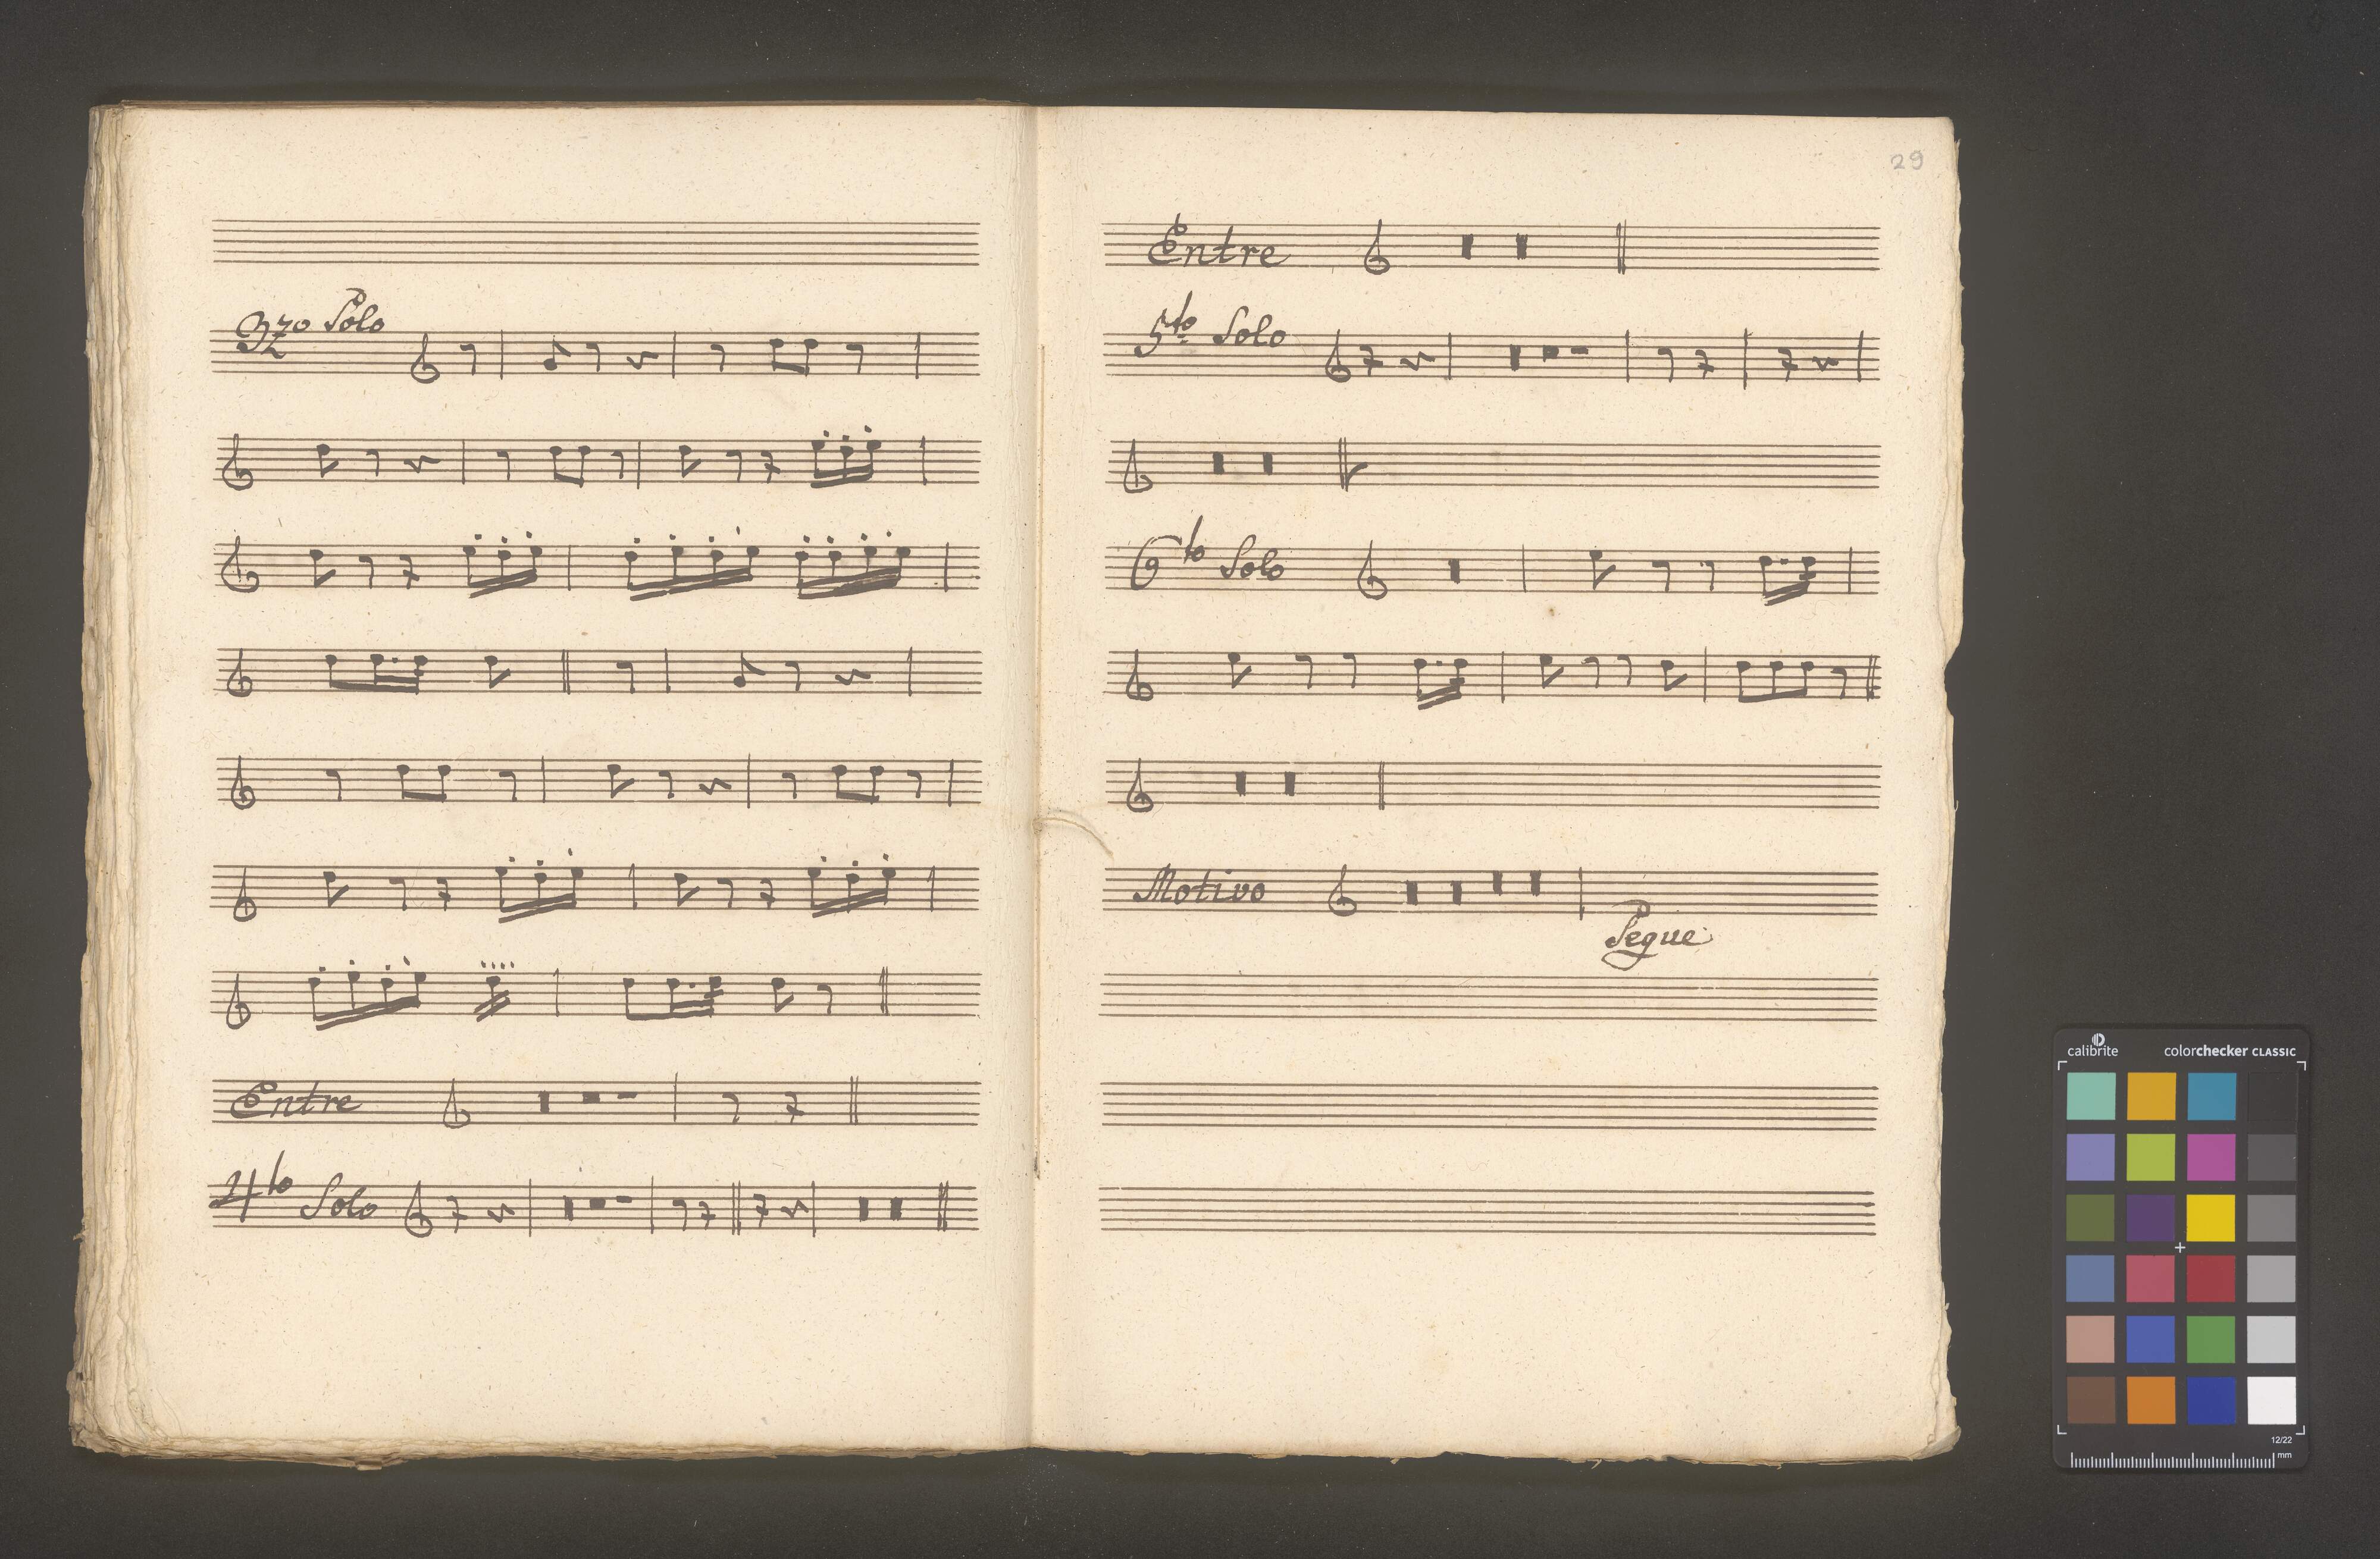 3zo Solo
Entre
4to Solo
29
Entre
5to Solo
6to Solo
Motivo
Segue
calibrite
colorchecker CLASSIC
12/22
mm